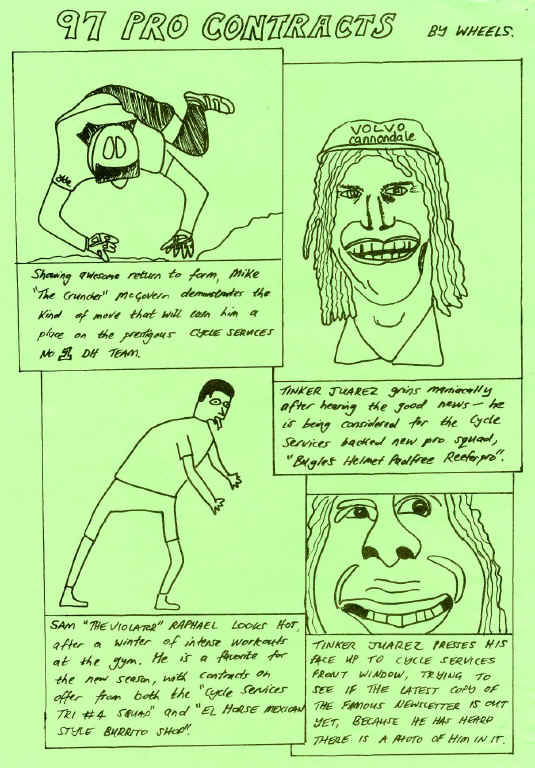 97 PRO CONTRACTS
BY WHEELS.
Showing awesome return to form, Mike
"The Cruncher" McGovern demonstrates the
kind of move that will earn him a
place on the prestigous CYCLE SERVICES
No 1 DH TEAM.
VOLVO
cannondale
TINKER JUAREZ grins maniacally
after hearing the good news - he
is being considered for the Cycle
Services backed new pro squad,
Helmet
SAM "THE VIOLATOR" RAPHAEL LOOKS HOT,
after a winter of intense workouts
at the gym. He is a favorite for
the new season, with contracts on
offer from both the "Cycle Services
TRI #4 SQUAD" and "EL HORSE MEXICAN
STYLE BURRITO SHOP".
TINKER JUAREZ PRESSES HIS
FACE UP TO CYCLE SERVICES
FRONT WINDOW, TRYING TO
SEE IF THE LATEST COPY OF
THE FAMOUS NEWSLETTER IS OUT
YET, BECAUSE HE HAS HEARD
THERE IS A PHOTO OF HIM IN IT.